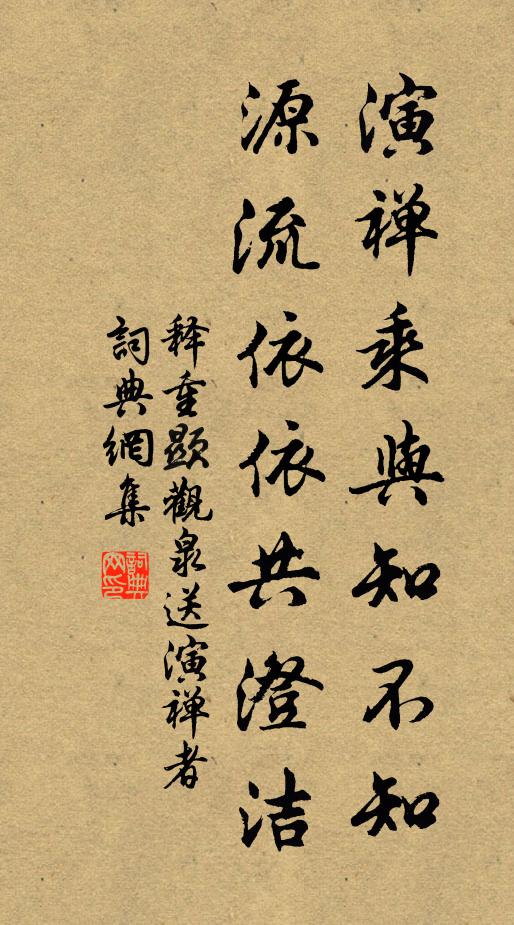 演禅乘與知不知
源流依依共澄洁
释重顯觀泉送演禅者
詞典網集
詞典网印